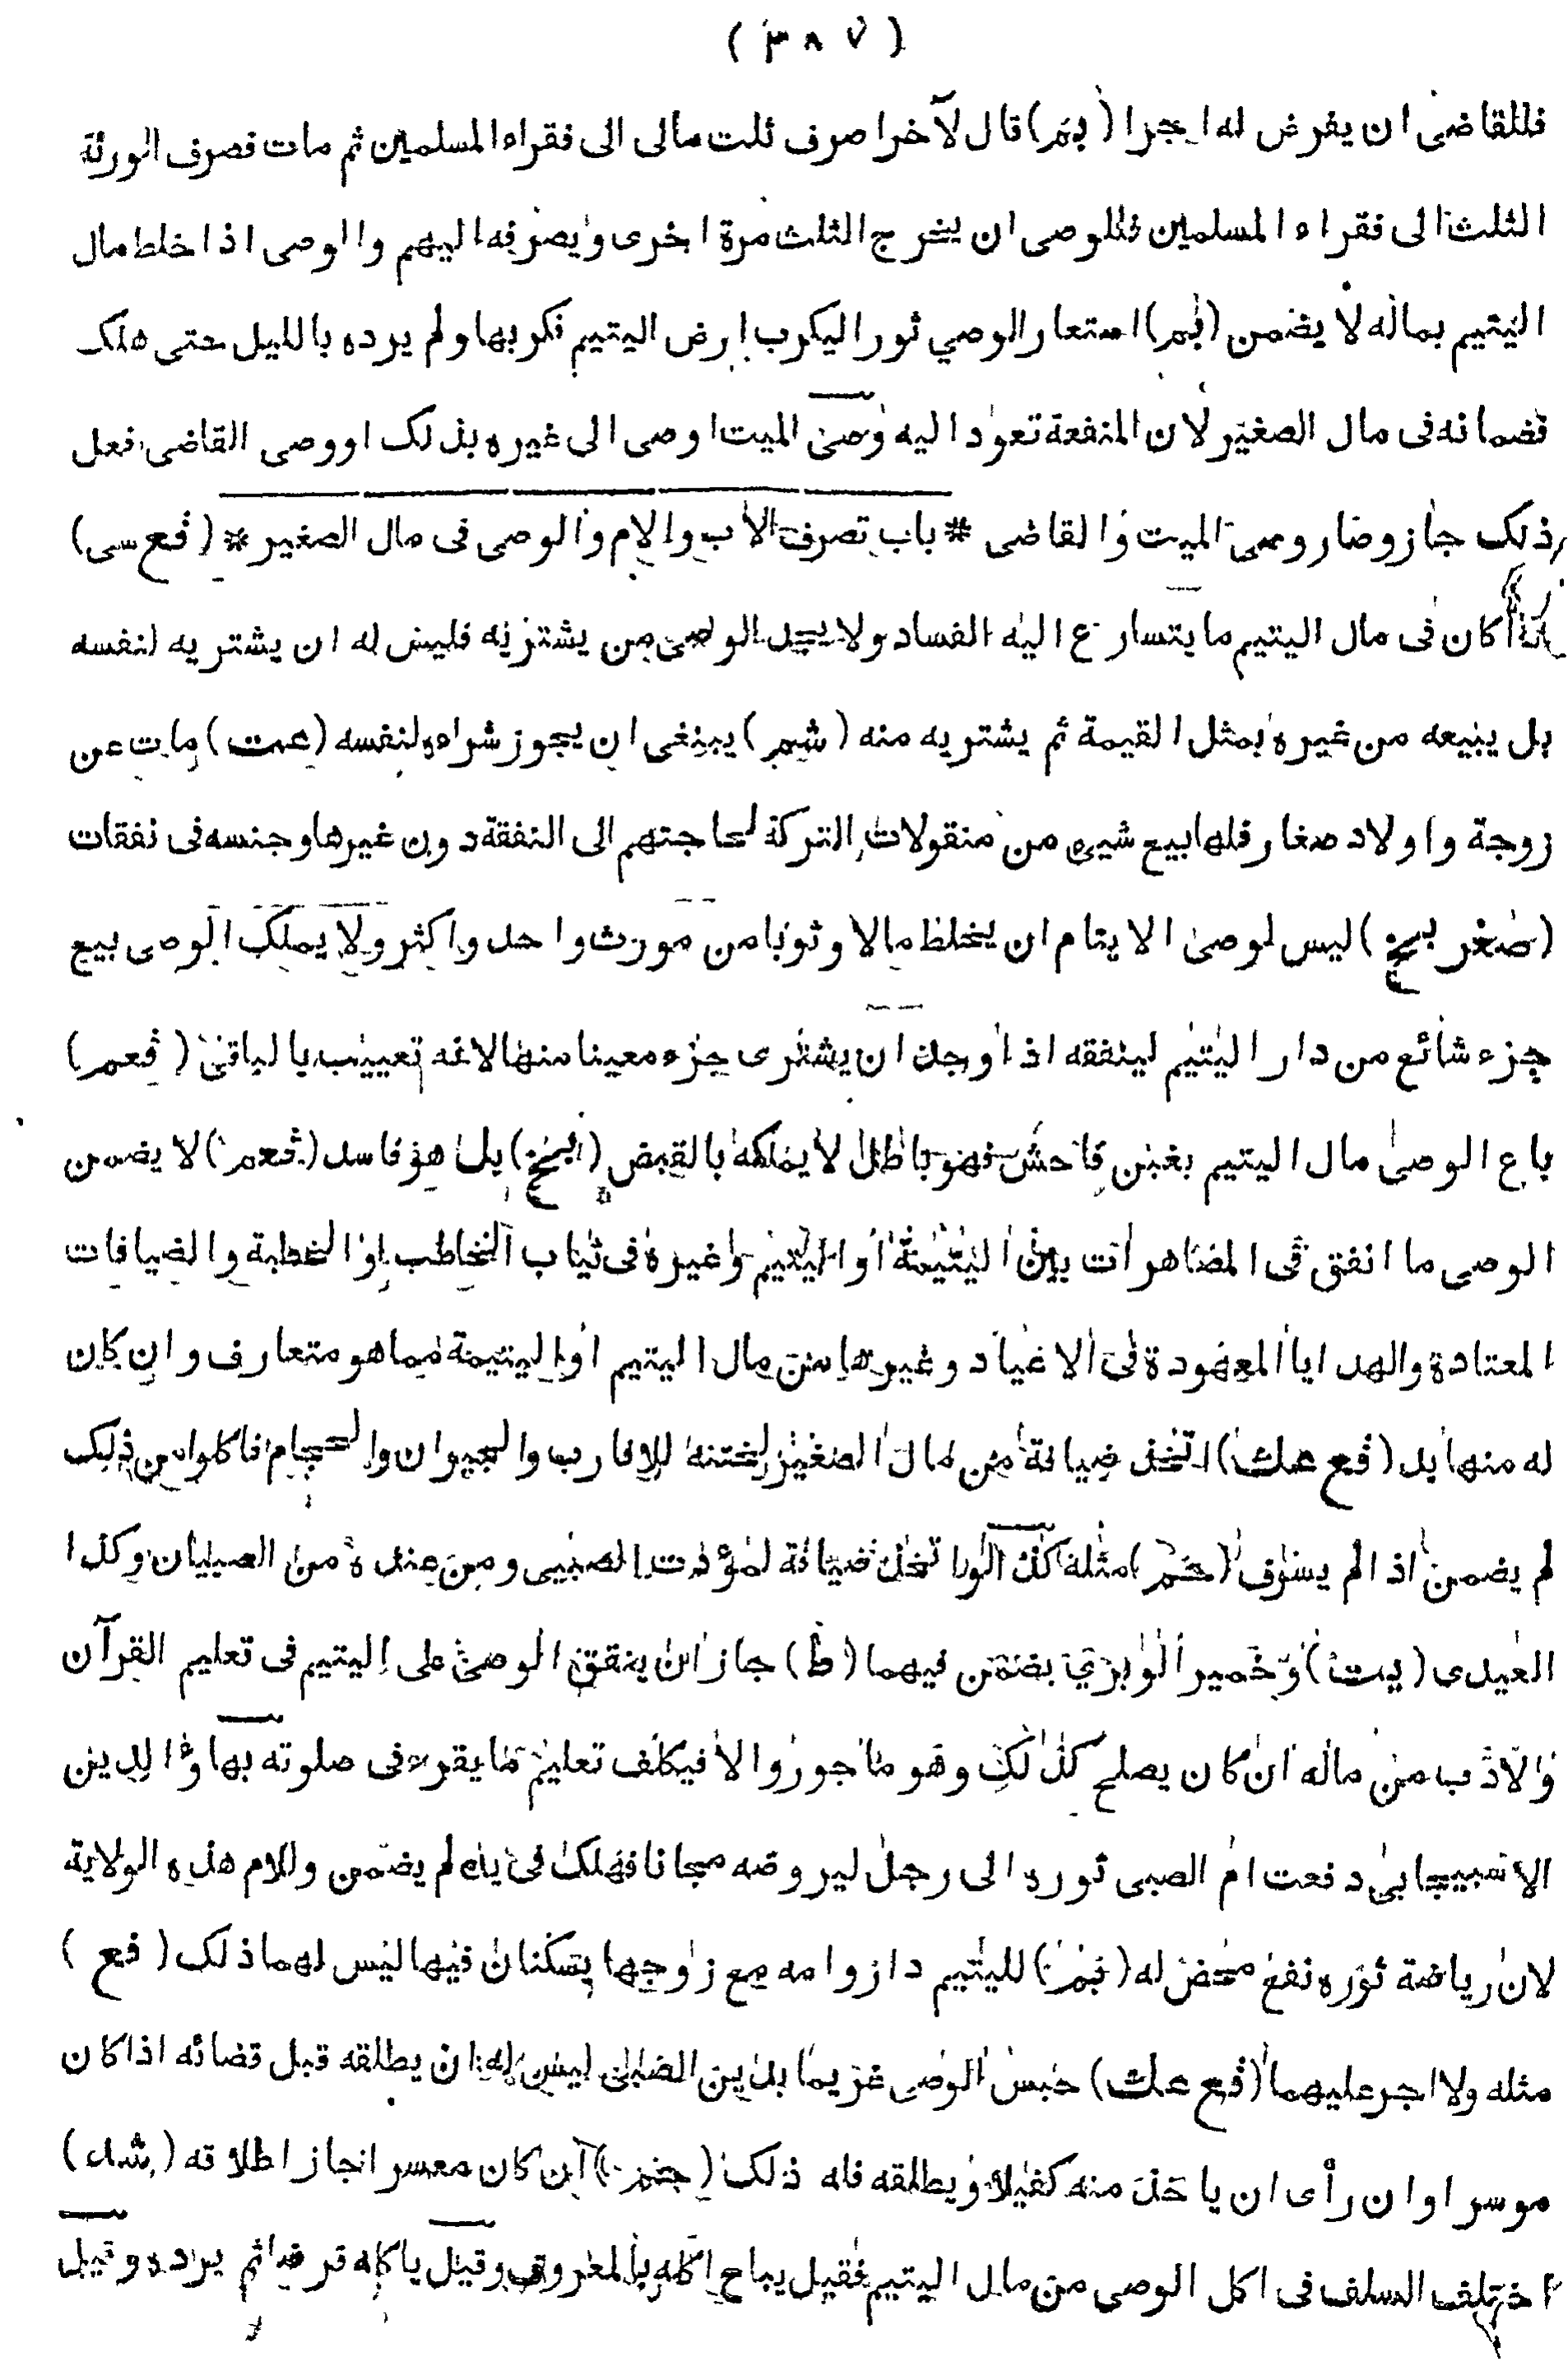 (٣٨٧)
فللقاضى ان يفرض له اجرا (بم) قال لآخر اصرف ثلث مالى الى فقراء المسلمين ثم مات فصرف الورثة
الثلث الى فقراء المسلمين فللوصى ان يخرج الثلث مرة اخرى ويصرفه اليهم والوصى اذا خلط مال
اليتيم بماله لا يضمن (بم) استعار الوصي ثورا ليكرب ارض اليتيم فكربها ولم يرده بالليل حتى هلك
فضمانه فى مال الصغير لان المنفعة تعود اليه وصى الميت اوصى الى غيره بذلك اووصى القاضى فعل
ذلك جاز وصار وصى الميت والقاضى * باب تصرف الاب والام والوصى فى مال الصغير * (قع سى)
اذا كان فى مال اليتيم ما يتسارع اليه الفساد ولا يجد الوصى من يشتريه فليس له ان يشتريه لنفسه
بل يبيعه من غيره بمثل القيمة ثم يشتريه منه (شم) ينبغى ان يجوز شراءه لنفسه (عت) مات عن
زوجة واولاد صغار فلها بيع شيء من منقولات التركة لحاجتهم الى النفقة دون غيرها وجنسه فى نفقات
(صغر بخ) ليس لوصى الايتام ان يخلط مالا وثوبا من مورث واحد واكثر ولا يملك الوصى بيع
جزء شائع من دار اليتيم لينفقه اذا وجد ان يشترى جزء معينا منها لانه تعييب بالباقى (قعم)
باع الوصى مال اليتيم بغبن فاحش فهو باطل لا يملكه بالقبض (بخ) بل هو فاسد (قعم) لا يضمن
الوصى ما انفق فى المصاهرات بين اليتيمة او اليتيم وغيره فى ثياب الخاطب او الخطبة والضيافات
المعتادة والهدايا المعهودة فى الاعياد وغيرها من مال اليتيم او اليتيمة مما هو متعارف وان كان
له منها بد (قع عك) اتخذ ضيافة من مال الصغير لختنه للاقارب والجيران والحجام فاكلوا من ذلك
لم يضمن اذا لم يسرف (حم) مثله كذا لو اتخذ ضيافة لمؤدب الصبى ومن عنده من الصبيان وكذا
العيدى (يت) وخمير الوبرى يضمن فيهما (ط) جاز ان ينفق الوصى على اليتيم فى تعليم القرآن
والادب من ماله ان كان يصلح كذلك وهو ماجور والا فيكلف تعليم ما يقرء فى صلوته بهاؤ الدين
الاسبيجابى دفعت ام الصبى ثوره الى رجل ليروضه مجانا فهلك فى يده لم يضمن وللام هذه الولاية
لان رياضة ثوره نفع محض له (نم) لليتيم دار وامه مع زوجها يسكنان فيها ليس لهما ذلك (قع)
مثله ولا اجر عليهما (قع عك) حبس الوصى غريما بدين الصبى ليس له ان يطلقه قبل قضائه اذا كان
موسرا وان رأى ان ياخذ منه كفيلا ويطلقه فله ذلك (جم) ان كان معسرا نجاز اطلاقه (شد)
اختلف السلف فى اكل الوصى من مال اليتيم فقيل يباح اكله بالمعروف وقيل ياكله قرضا ثم يرده وقيل